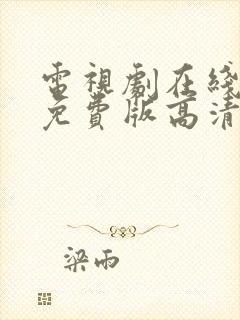 電視劇在綫
免費版高清
梁雨